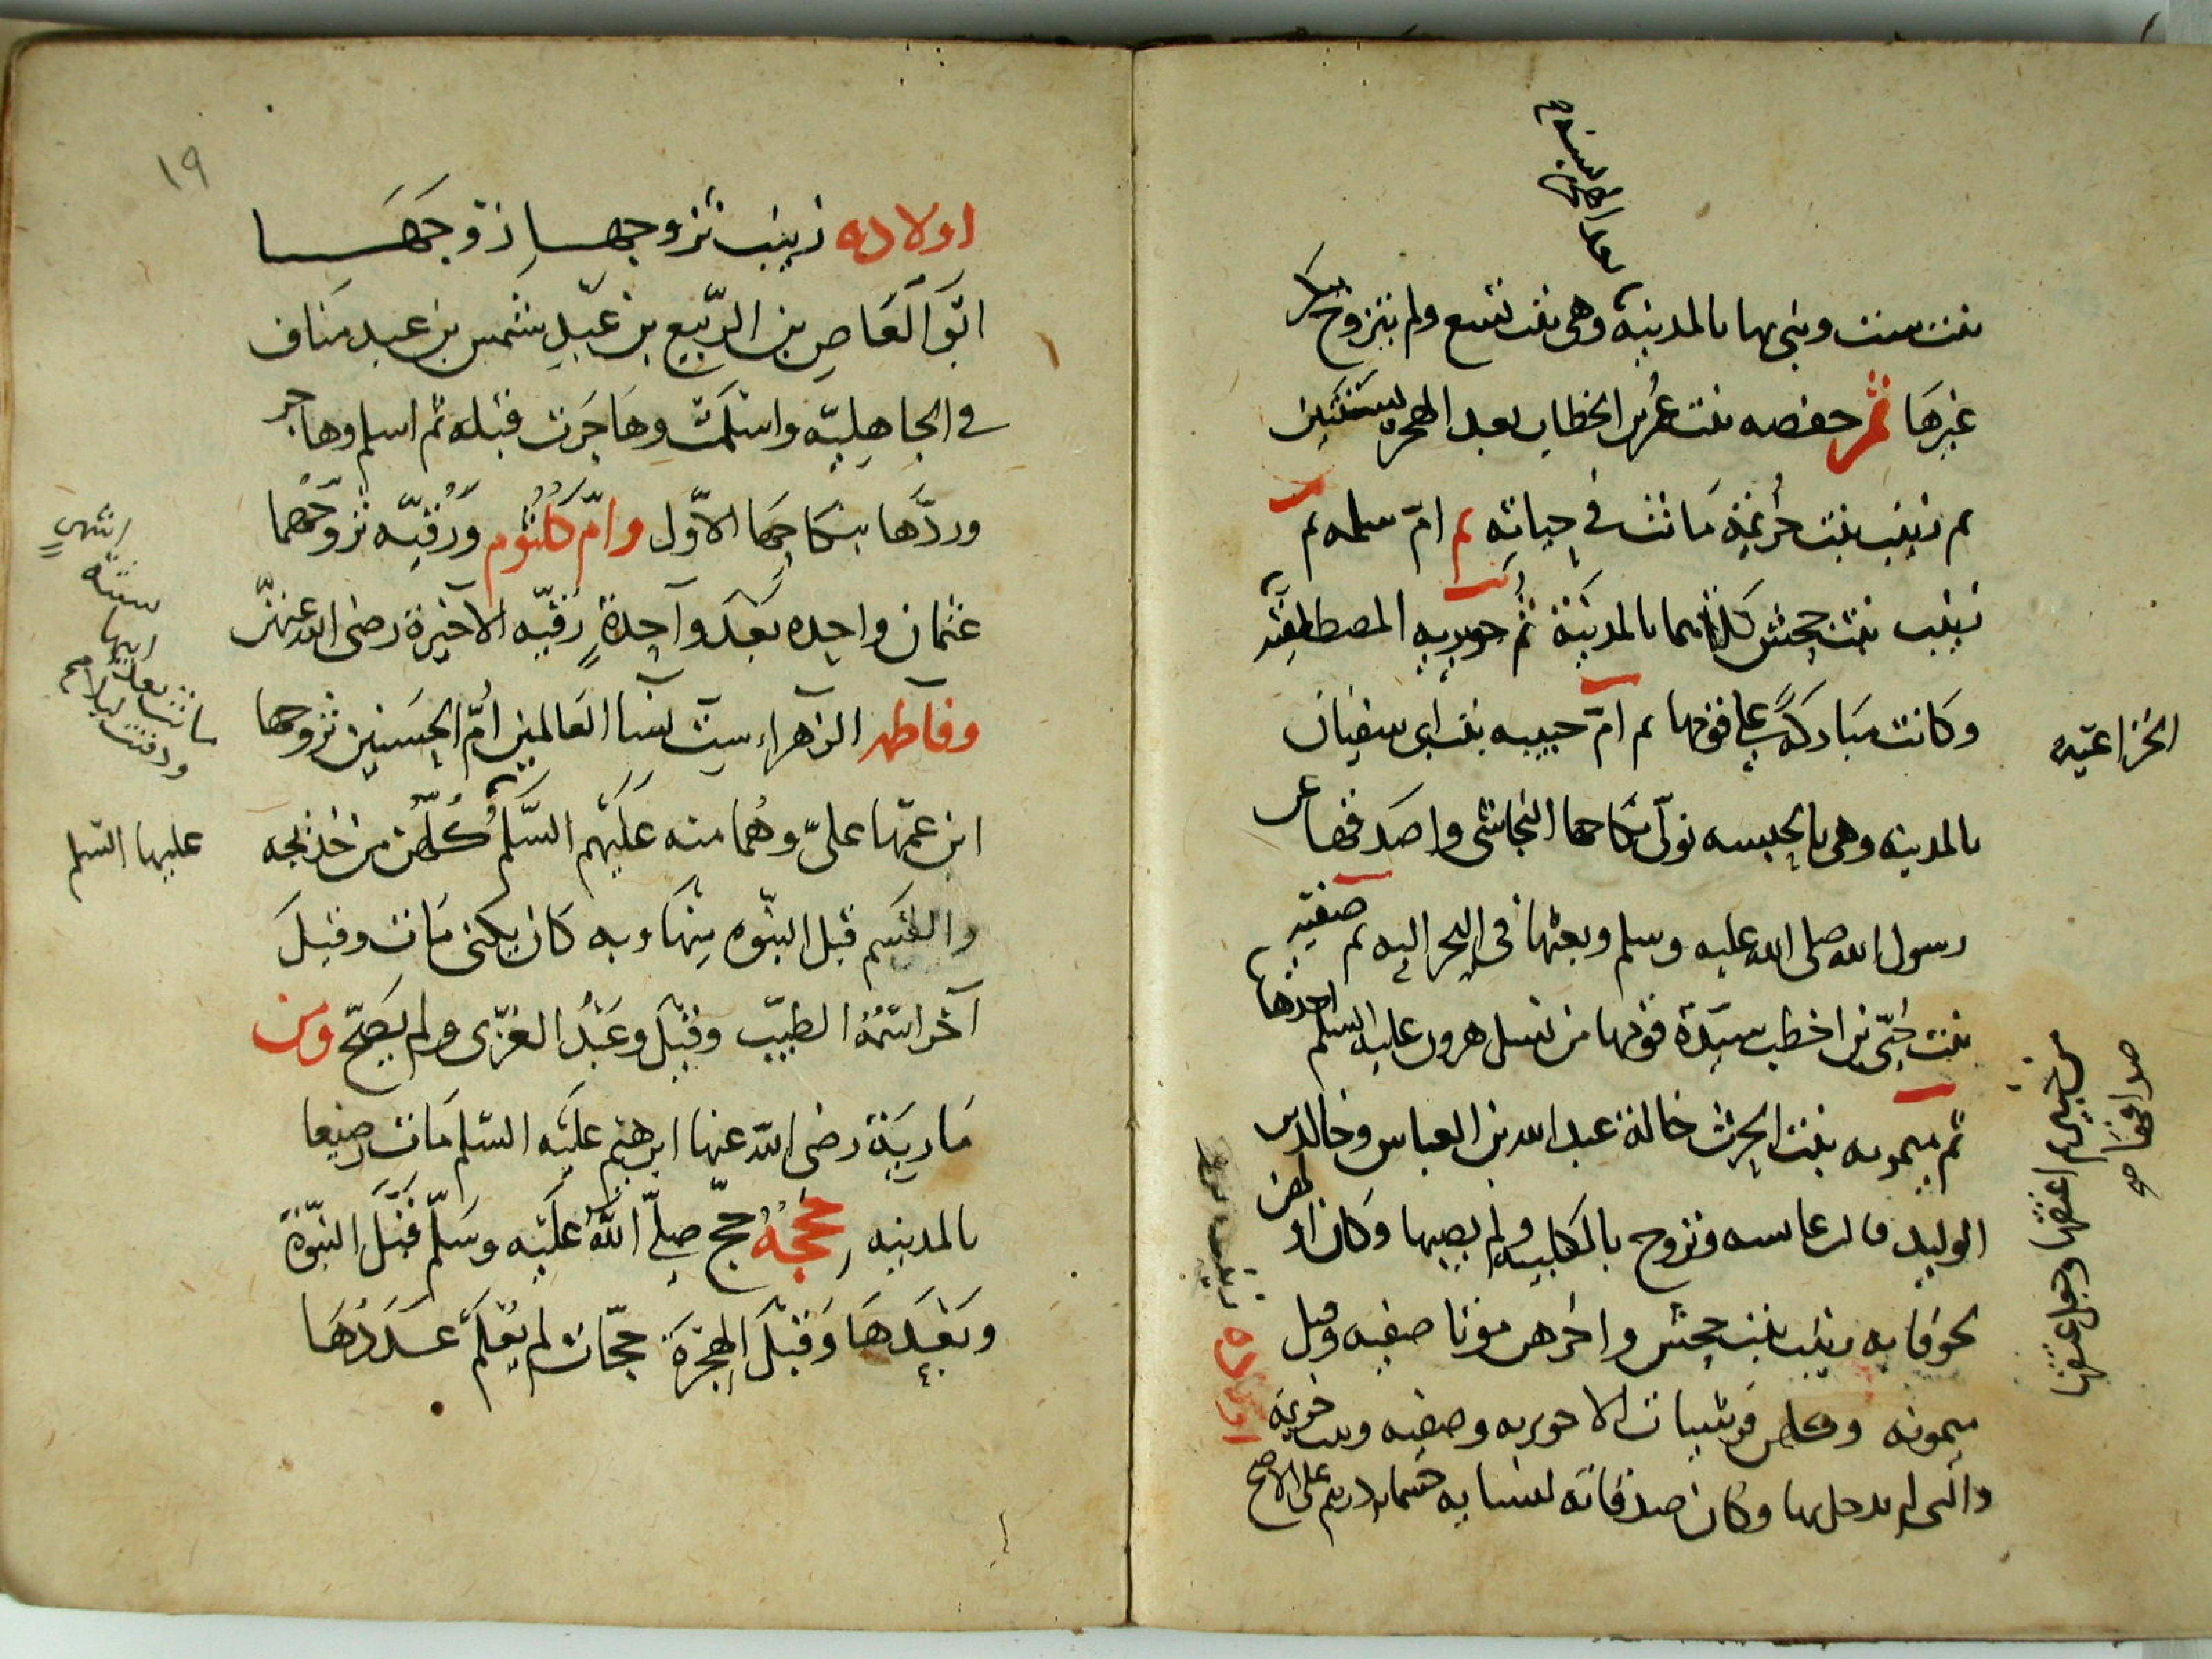 بنت ست وبنى بها بالمدينة وهي بنت تسع ولم يتزوج بكرا
غيرها ثم حفصه بنت عمر بن الخطاب بعد الهجرة بسنتين
ثم زينب بنت خزيمة ماتت في حياته ثم ام سلمه ثم
زينب بنت جحش كلاهما بالمدينة ثم جويريه المصطلقيه
وكانت مباركة على قومها ثم ام حبيبه بنت ابي سفيان
الخزاعيه
بالمدينه وهي بالحبشه تولى نكاحها النجاشي واصدقها عن
رسول الله صلى الله عليه وسلم وبعثها في البحر اليه ثم صفيه
بنت حيي بن اخطب سيدة قومها من نسل هرون عليه السلم اخذها
من خيبر ثم اعتقها وجعل عتقها
صداقها صح
ثم ميمونه بنت الحرث خالة عبد الله بن العباس وخالد بن
الوليد قالت عائشه وتزوج بالكلبيه ولم يصبها وكان اولهن
لحوقا به زينب بنت جحش واخرهن موتا صفيه وقيل
ميمونه وكلهن قرشيات الا جويريه وصفيه وبنت خزيمة
والتي لم يدخل بها وكان صدقاته لنسايه خمسمايه درهم على الاصح
١٩
اولاده زينب تزوجها زوجها
ابو العاص بن الربيع بن عبد شمس بن عبد مناف
في الجاهليه واسلمت وهاجرت قبله ثم اسلم وهاجر
وردها بنكاحها الاول وام كلثوم ورقيه تزوجهما
عثمان واحده بعد واحدة رقيه الاخيرة رضي الله عنهن
وفاطمه الزهراء ست نسا العالمين ام الحسنين تزوجها
ابن عمها علي وهما منه عليهم السلم كلهن من خديجه
عليها السلم
والقسم قبل النبوه منها وبه كان يكنى مات وقيل
آخر اسمه الطيب وقيل وعبد العزى ولم يصح ومن
مارية رضي الله عنها ابرهيم عليه السلم مات رضيعا
بالمدينه حججه حج صلى الله عليه وسلم قبل النبوة
وبعدها وقبل الهجرة حجات لم يعلم عددها